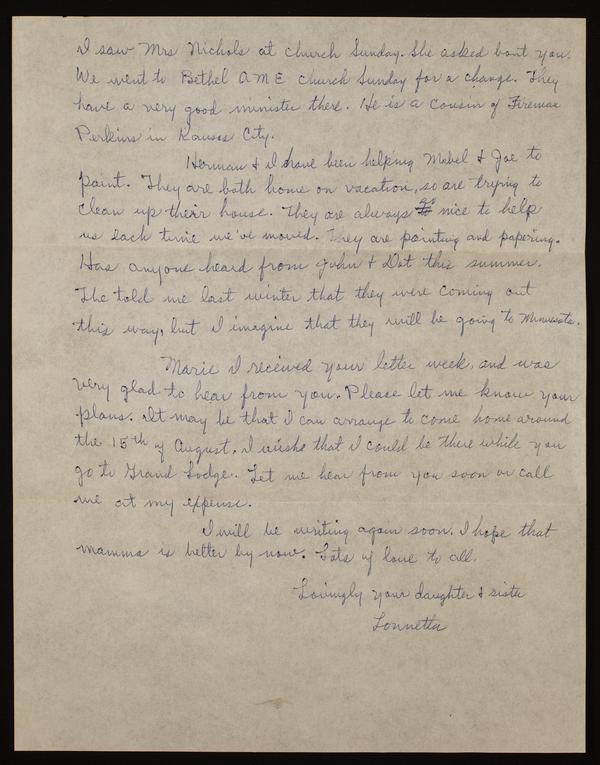 I saw Mrs Nichols at church Sunday. She asked bout you.
We went to Bethel A M E church Sunday for a change. They
have a very good minister there. He is a cousin of Fireman
Perkins in Kansas City.
Herman & I have been helping Mabel & Joe to
paint. They are both home on vacation, so are trying to
clean up their house. They are always so nice to help
us each time we've moved. They are painting and papering.
Has anyone heard from John & Dot this summer.
She told me last winter that they were coming out
this way, but I imagine that they will be going to Minnesota.
Marie I received your letter week, and was
very glad to hear from you. Please let me know your
plans. It may be that I can arrange to come home around
the 15th of August. I wish that I could be there while you
go to Grand Lodge. Let me hear from you soon or call
me at my expense.
I will be writing again soon. I hope that
mamma is better by now. Lots of love to all.
Lovingly your daughter & sister
Lonnetta